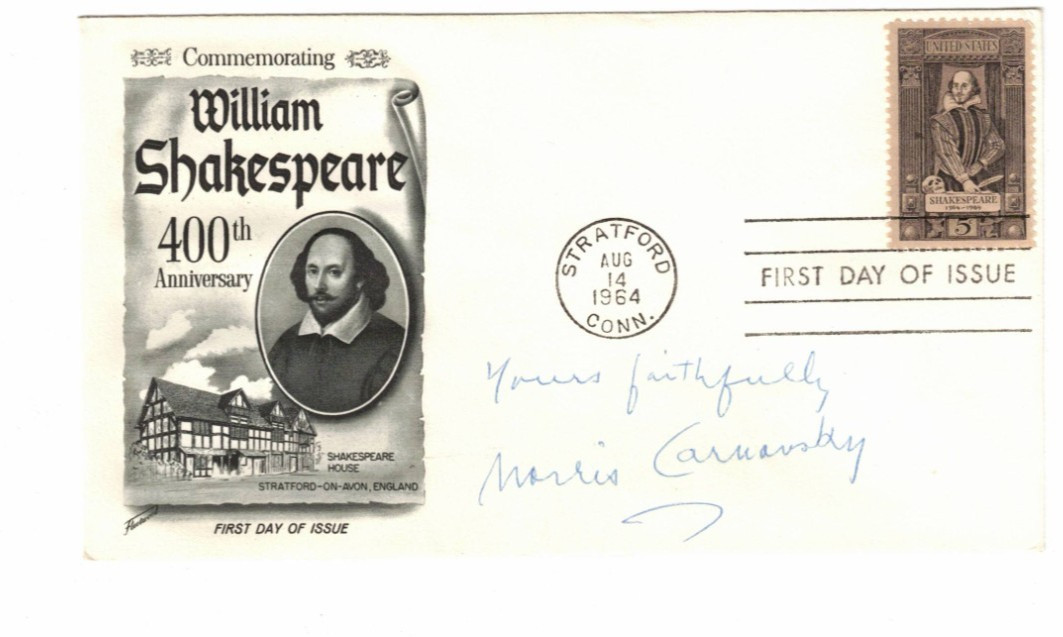 Commemorating
William
Shakespeare
400th
Anniversary
SHAKESPEARE
HOUSE
STRATFORD-ON-AVON, ENGLAND
Fleetwood
FIRST DAY OF ISSUE
UNITED STATES
SHAKESPEARE
1564-1964
5¢
STRATFORD
AUG
14
1964
CONN.
FIRST DAY OF ISSUE
Yours faithfully
Morris Carnovsky